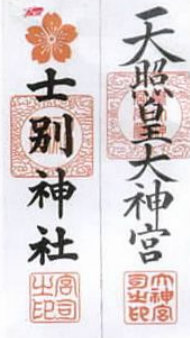 天照皇大神宮
大神宮司之印
士別神社
宮司之印